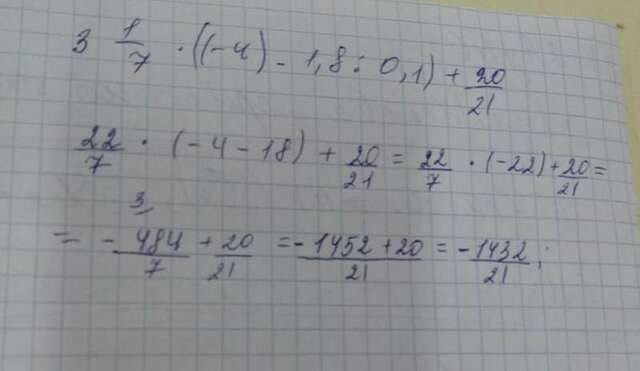 3 1/7 · ((-4) - 1,8 : 0,1) + 20/21
22/7 · (-4 - 18) + 20/21 = 22/7 · (-22) + 20/21 =
3
= - 484/7 + 20/21 = - 1452 + 20/21 = - 1432/21 ;